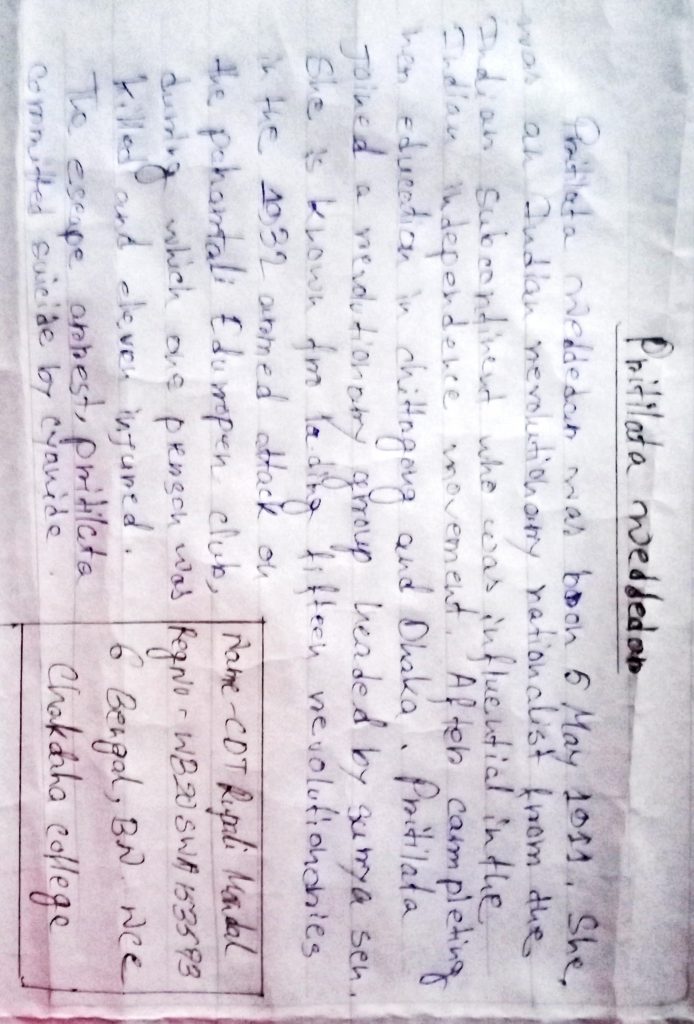 Pritilata weddedar
Pritilata weddedar was booh 5 May 1911. She,
was an Indian revolutionary nationalist from the
Indian subcontinent who was influential in the
Indian independence movement. After campleting
her education in chittagong and Dhaka. Pritilata
Joined a revolutionary group headed by surya sen.
She is known fro lading fifteen revolutionaries
in the 1932 armed attack on
the pahartali Eduropen club,
during which one person was
killed and eleven injured.
The escape arrest, pritilata
committed suicide by cyanide.
Name-CDT Rupali Mondal
Regno-WB20SWA153593
6 Bengal, BN. NCC
Chakdaha College